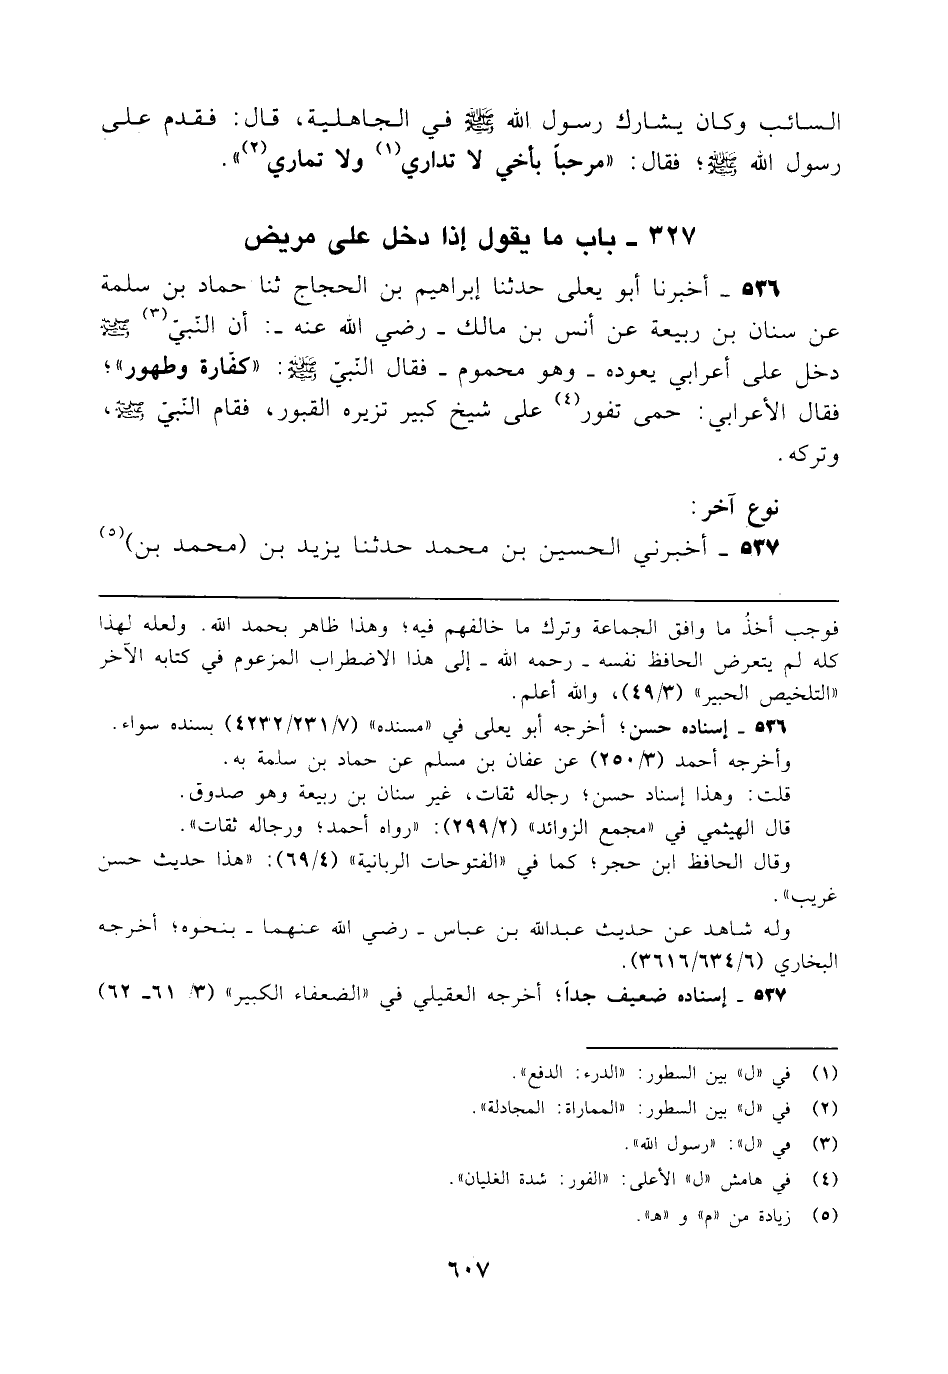 السائب وكان يشارك رسول الله ﷺ في الجاهلية، قال: فقدم على
رسول الله ﷺ؛ فقال: «مرحباً بأخي لا تداري(١) ولا تماري(٢)».
٣٢٧ ـ باب ما يقول إذا دخل على مريض
٥٣٦ ـ أخبرنا أبو يعلى حدثنا إبراهيم بن الحجاج ثنا حماد بن سلمة
عن سنان بن ربيعة عن أنس بن مالك ـ رضي الله عنه ـ: أن النّبيّ(٣) ﷺ
دخل على أعرابي يعوده ـ وهو محموم ـ فقال النّبيّ ﷺ: «كفّارة وطهور»؛
فقال الأعرابي: حمى تفور(٤) على شيخ كبير تزيره القبور، فقام النّبيّ ﷺ،
وتركه.
نوع آخر:
٥٣٧ ـ أخبرني الحسين بن محمد حدثنا يزيد بن (محمد بن)(٥)
فوجب أخذُ ما وافق الجماعة وترك ما خالفهم فيه؛ وهذا ظاهر بحمد الله. ولعله لهذا
كله لم يتعرض الحافظ نفسه ـ رحمه الله ـ إلى هذا الاضطراب المزعوم في كتابه الآخر
«التلخيص الحبير» (٤٩/٣)، والله أعلم.
٥٣٦ ـ إسناده حسن؛ أخرجه أبو يعلى في «مسنده» (٤٢٣٢/٢٣١/٧) بسنده سواء.
وأخرجه أحمد (٢٥٠/٣) عن عفان بن مسلم عن حماد بن سلمة به.
قلت: وهذا إسناد حسن؛ رجاله ثقات، غير سنان بن ربيعة وهو صدوق.
قال الهيثمي في «مجمع الزوائد» (٢٩٩/٢): «رواه أحمد؛ ورجاله ثقات».
وقال الحافظ ابن حجر؛ كما في «الفتوحات الربانية» (٦٩/٤): «هذا حديث حسن
غريب».
وله شاهد عن حديث عبدالله بن عباس ـ رضي الله عنهما ـ بنحوه؛ أخرجه
البخاري (٣٦١٦/٦٣٤/٦).
٥٣٧ ـ إسناده ضعيف جداً؛ أخرجه العقيلي في «الضعفاء الكبير» (٣/ ٦١ـ ٦٢)
(١) في «ل» بين السطور: «الدرء: الدفع».
(٢) في «ل» بين السطور: «المماراة: المجادلة».
(٣) في «ل»: «رسول الله».
(٤) في هامش «ل» الأعلى: «الفور: شدة الغليان».
(٥) زيادة من «م» و «هـ».
٦٠٧